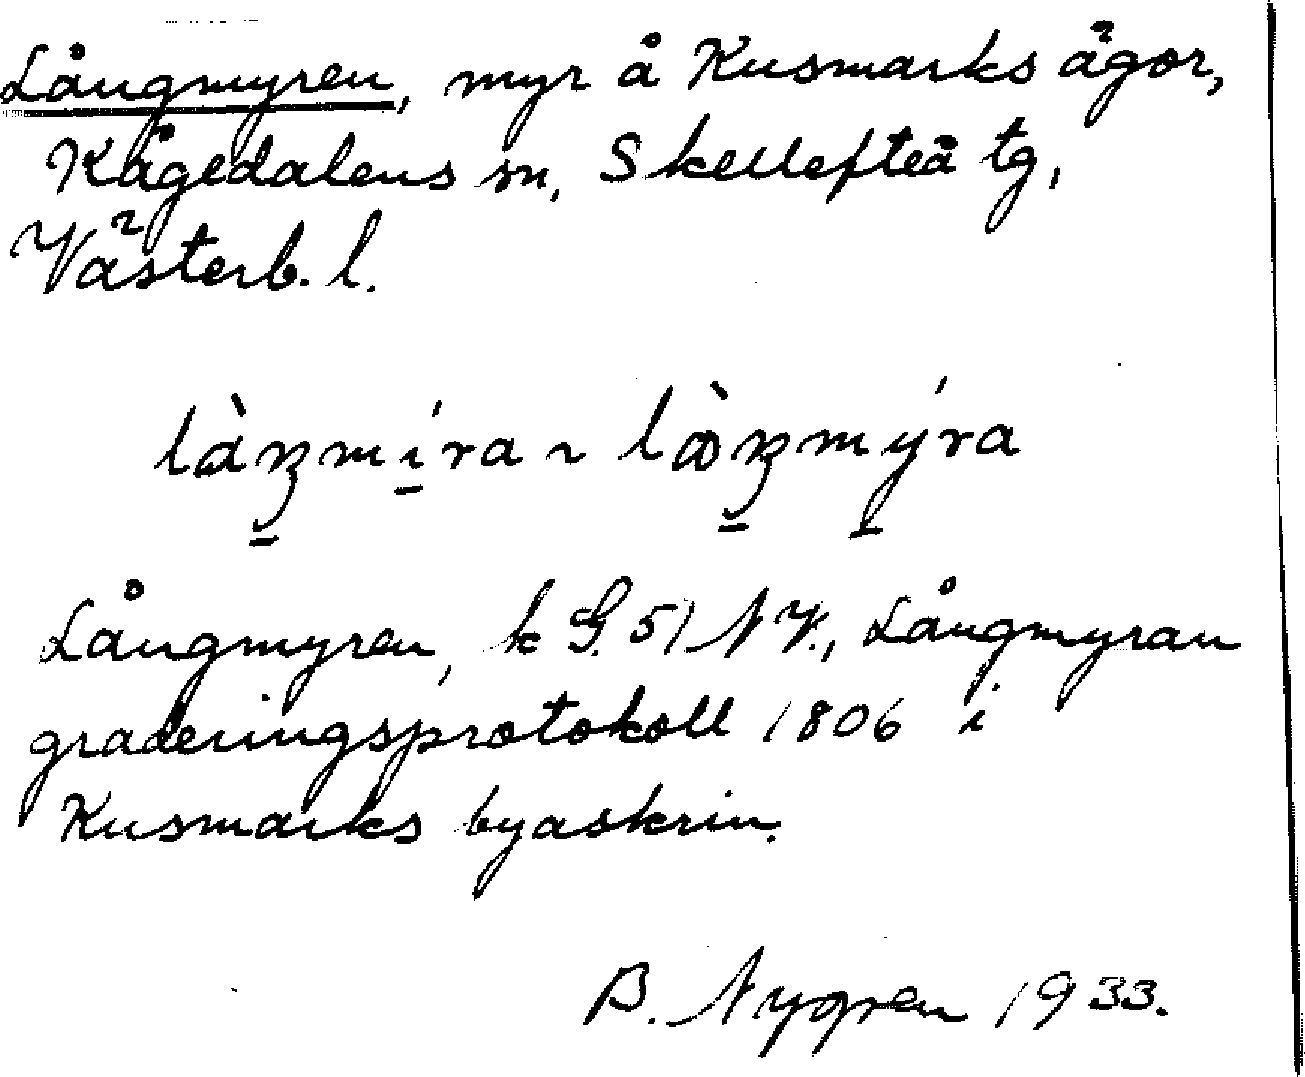 Långmyren, myr å Kusmarks ägor,
Kågedalens sn, Skellefteå tg,
Västerb. l.
làŋmíra ~ lòŋmýra
Långmyren, k G. 51 NV., Långmyran
graderingsprotokoll 1806 i
Kusmarks byaskrin.
B. Nygren 1933.